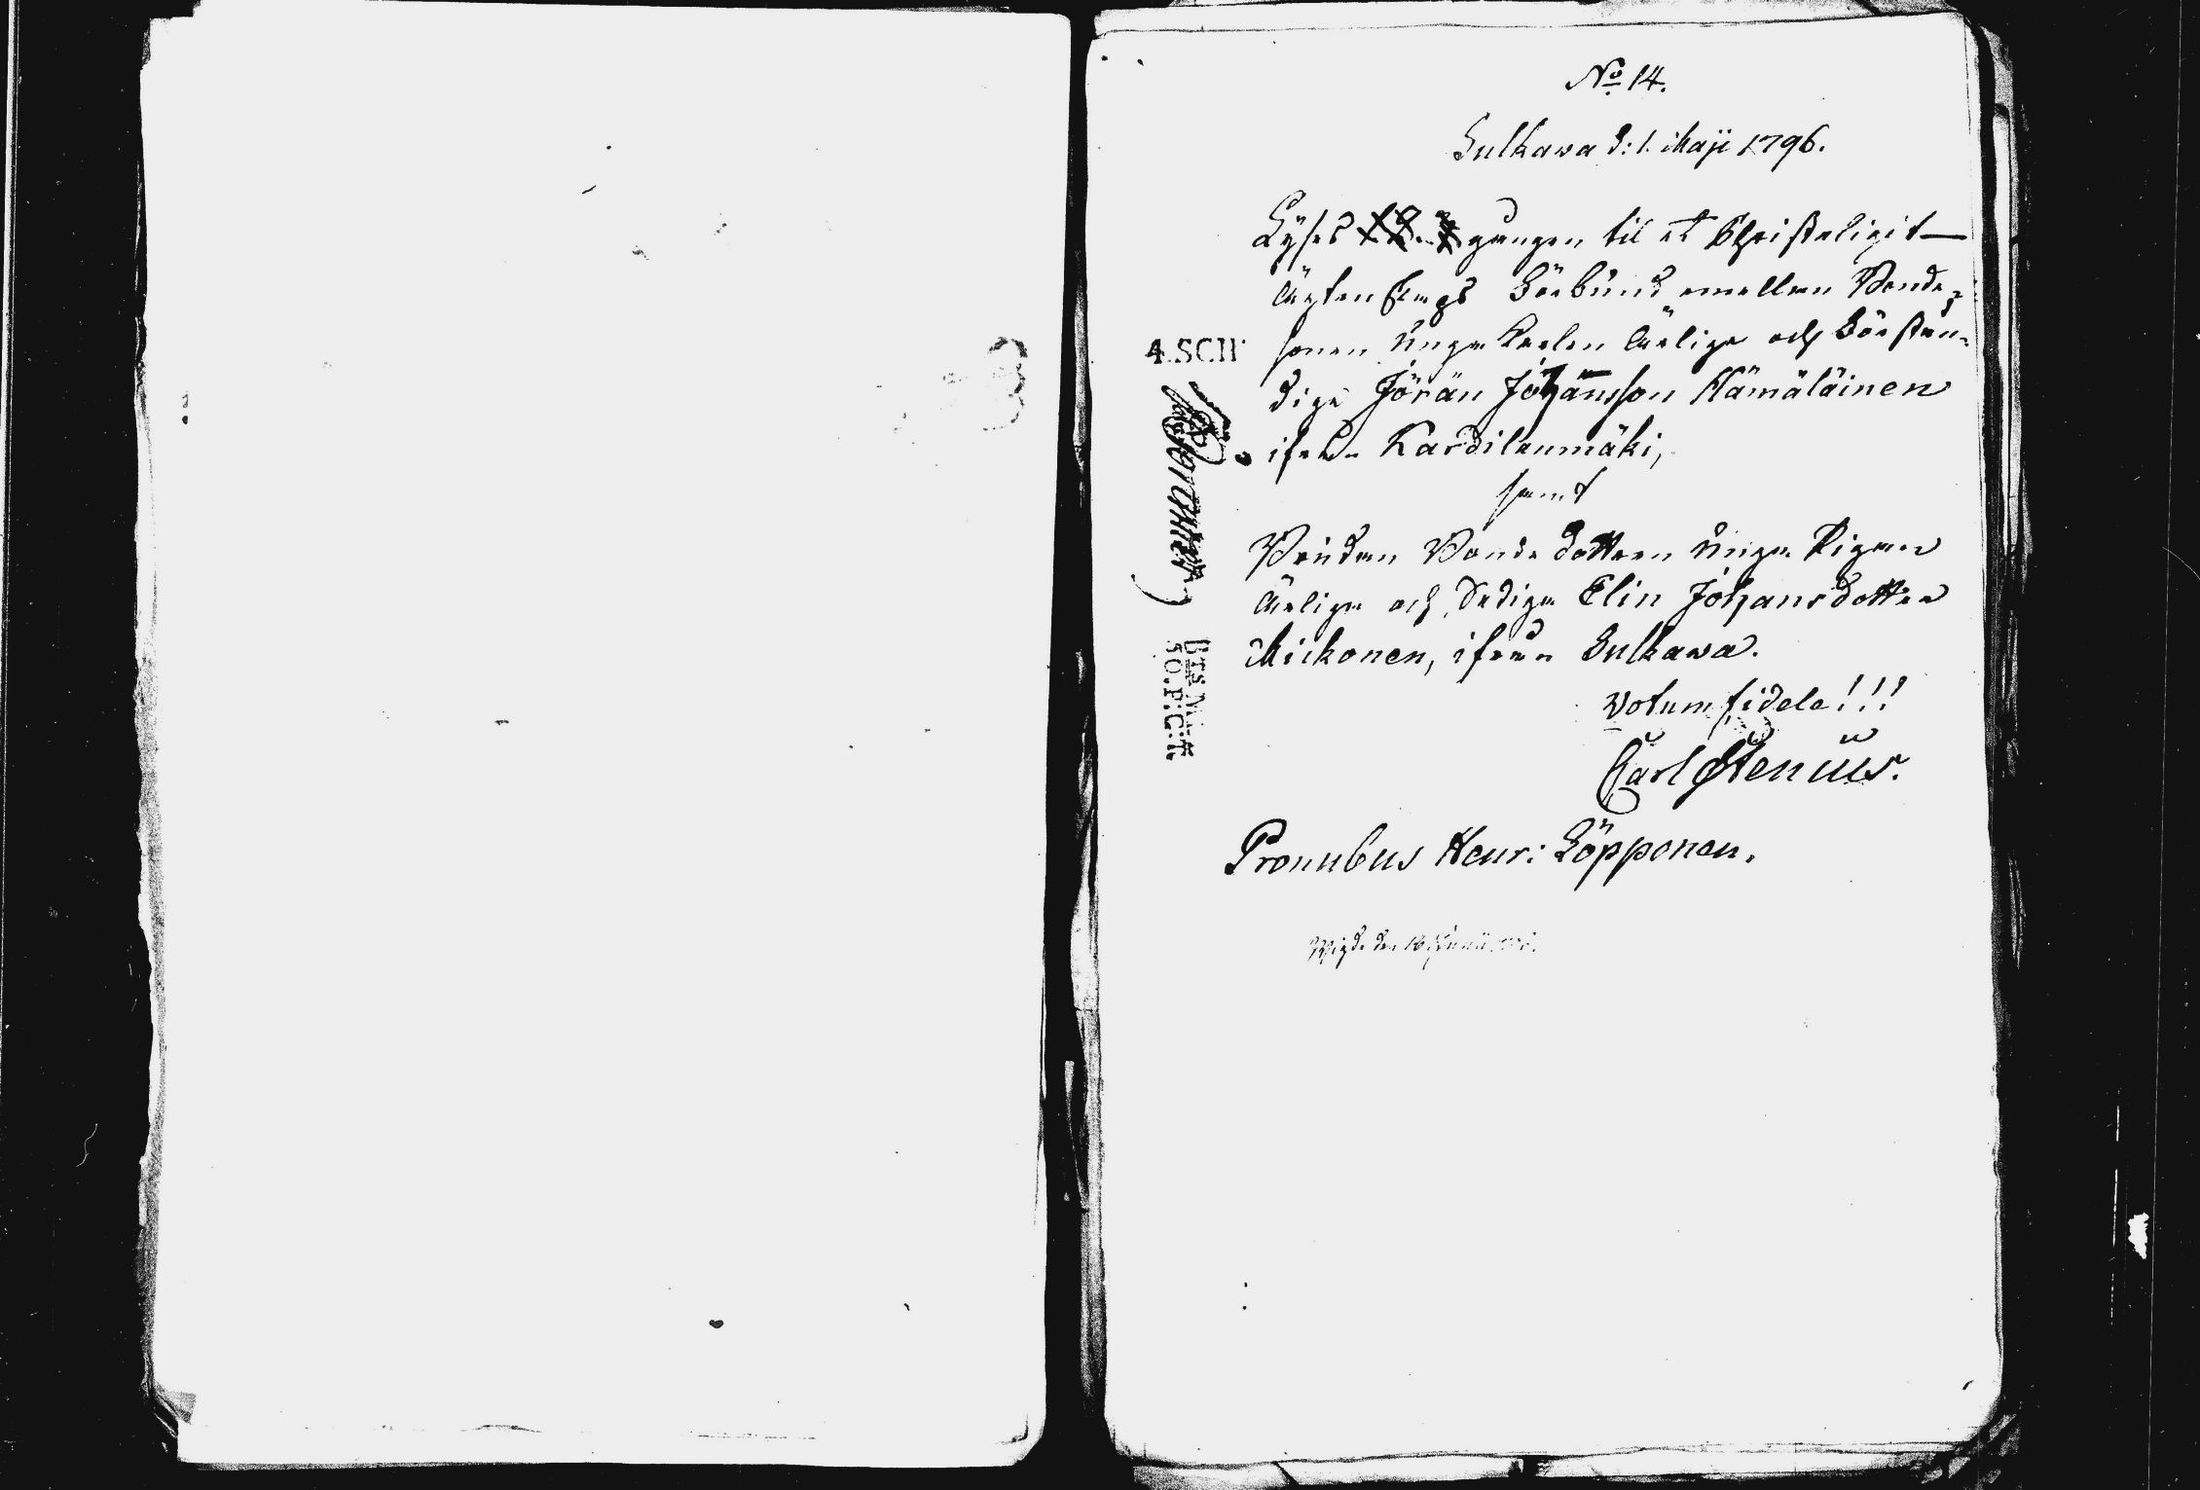 No 14.
Sulkawa d: 1. Maji 1796.
Lyses gången til et Christeligit
Ächtenskaps Förbund emellan Bonde-
sonen Unga Karlen Ärlige och Förstån-
dige Jöran Johansson Hämäläinen
ifrån Kardilanmäki,
samt
Bruden Bonde dottren unga Pigan
Ärliga och Dydiga Elin Johansdotter
Mickonen, ifrån Sulkawa.
Votum fidele!!!
Carl Stenius.
Pronubus Henr: Löpponen.
Wigde den 16 Junii
4.SCH